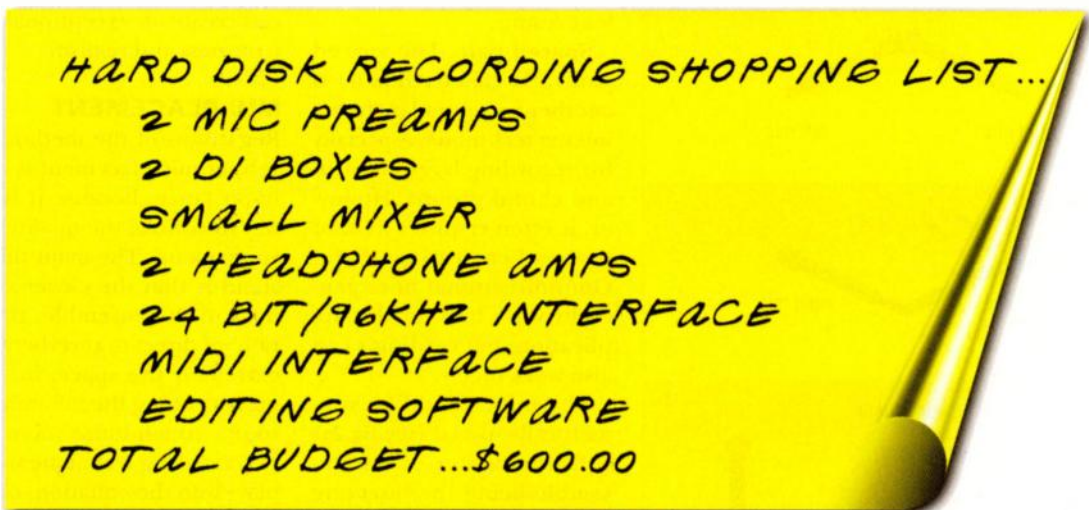 HaRD DISK RECORDING SHOPPING LIST...
2 MIC PREAMPS
2 DI BOXES
SMaLL MIXER
2 HEaDPHONE aMPS
24 BIT/96KHZ INTERFaCE
MIDI INTERFaCE
EDITING SOFTWaRE
TOTaL BUDGET...$600.00